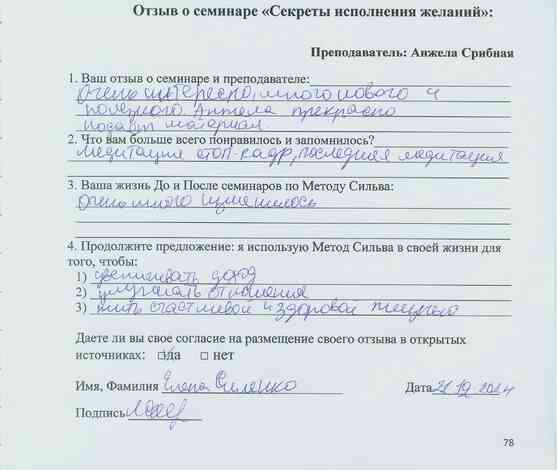 Отзыв о семинаре «Секреты исполнения желаний»:
Преподаватель: Анжела Срибная
1. Ваш отзыв о семинаре и преподавателе:
Очень интересно, много нового и
полезного. Анжела прекрасно
подаёт материал.
2. Что вам больше всего понравилось и запомнилось?
Медитации стоп-кадр, последняя медитация
3. Ваша жизнь До и После семинаров по Методу Сильва:
Очень много изменилось
4. Продолжите предложение: я использую Метод Сильва в своей жизни для
того, чтобы:
1) увеличивать доход
2) улучшать отношения
3) жить счастливой и здоровой жизнью
Даете ли вы свое согласие на размещение своего отзыва в открытых
источниках: да нет
Имя, Фамилия Елена Силенко
Дата 21.12.2024
Подпись
78